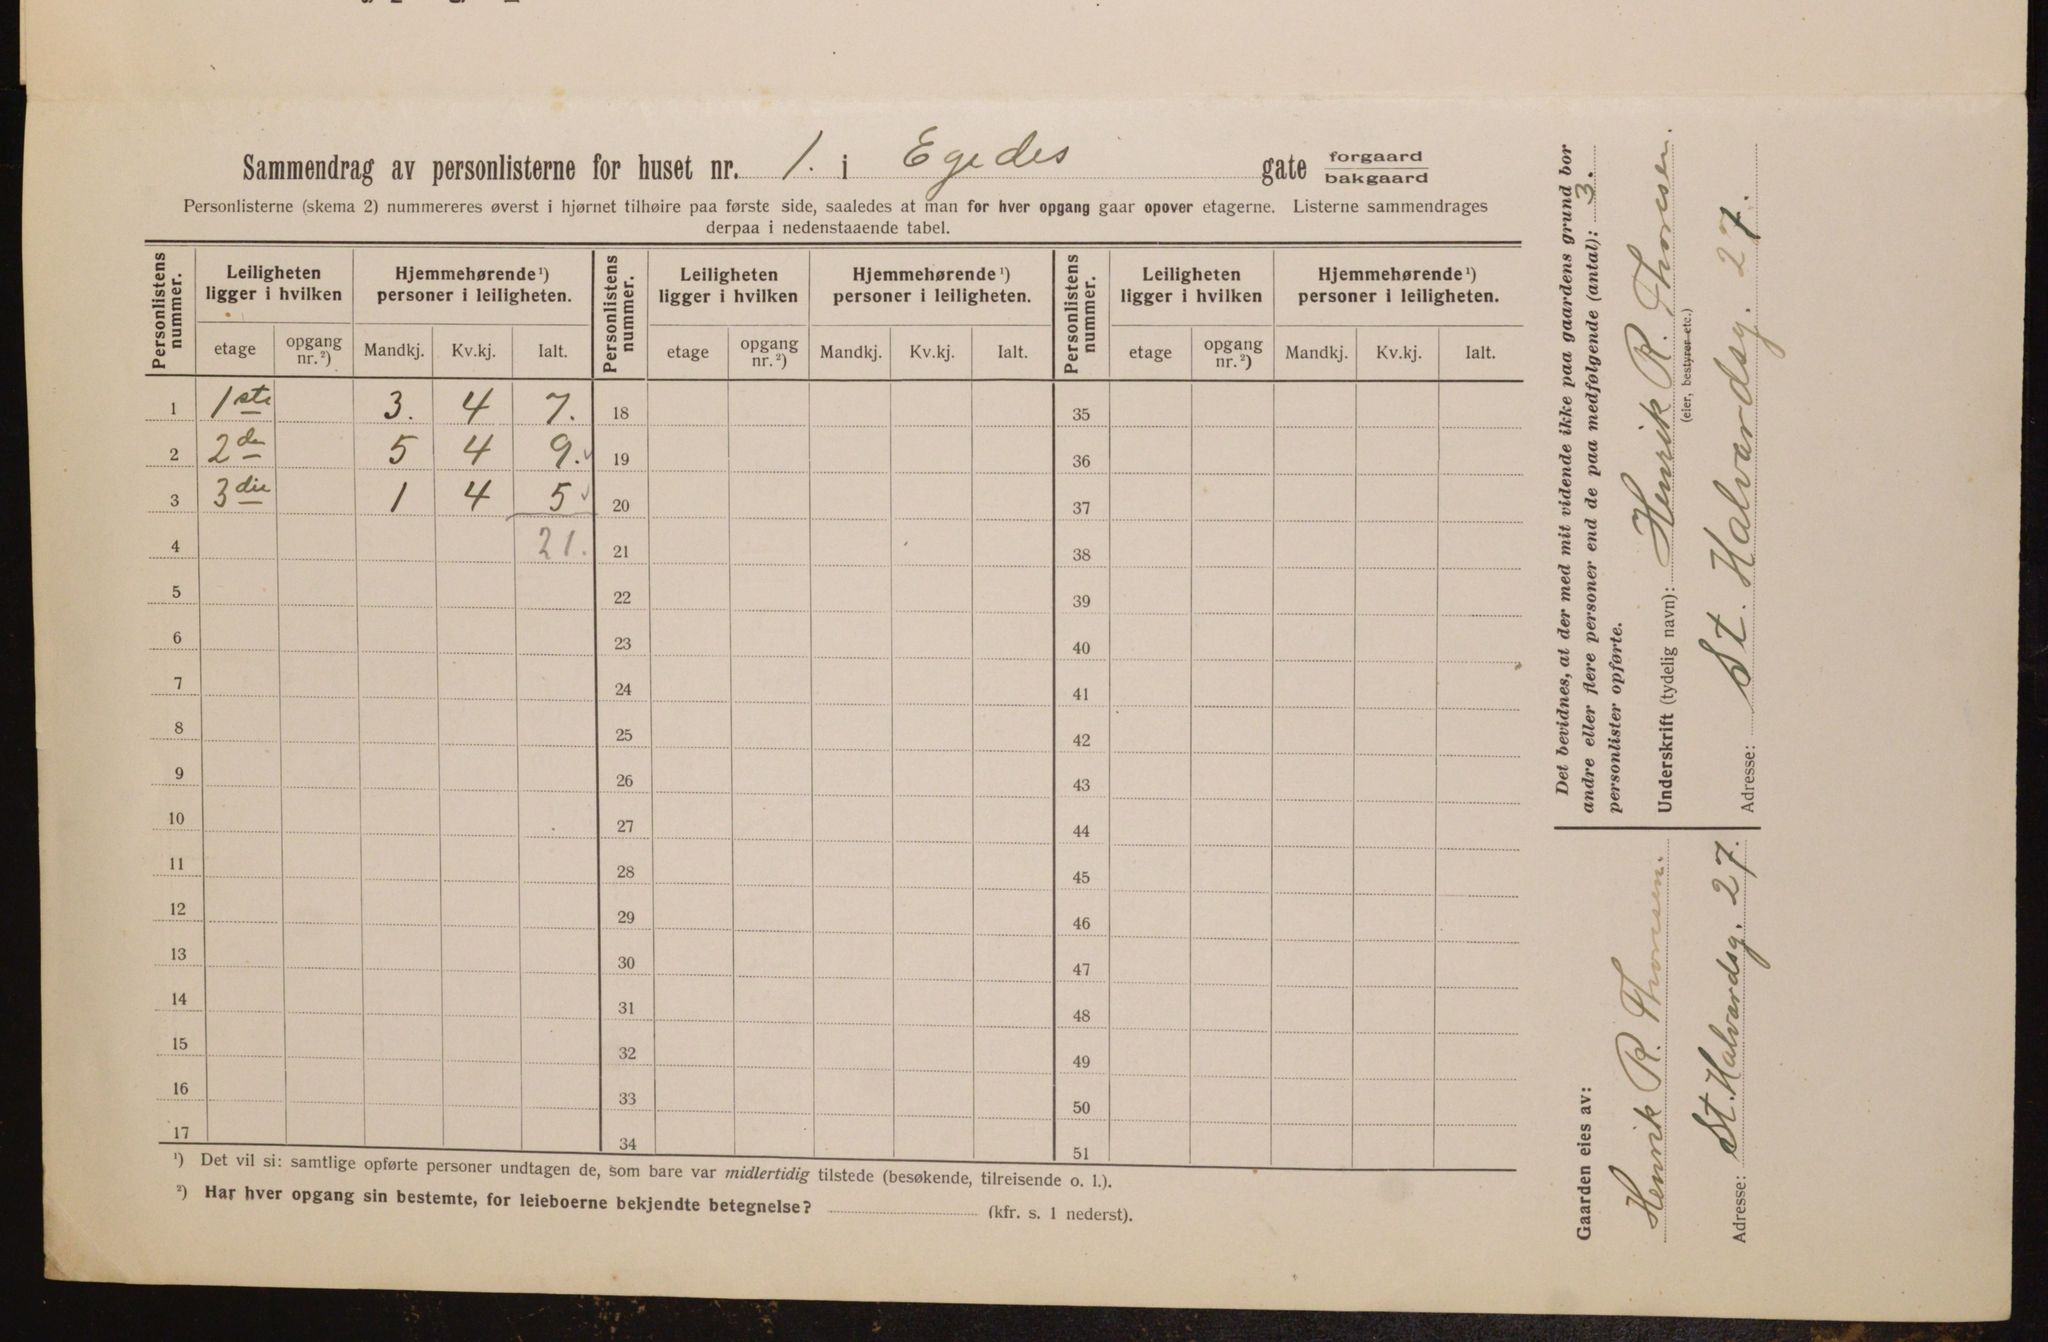 Sammendrag av personlisterne for huset nr. 1. i Egedes gate forgaard / bakgaard
Personlisterne (skema 2) nummereres øverst i hjørnet tilhøire paa første side, saaledes at man for hver opgang gaar opover etagerne. Listerne sammendrages
derpaa i nedenstaaende tabel.
Personlistens nummer. Leiligheten ligger i hvilken Hjemmehørende ¹) personer i leiligheten. Personlistens nummer. Leiligheten ligger i hvilken Hjemmehørende ¹) personer i leiligheten. Personlistens nummer. Leiligheten ligger i hvilken Hjemmehørende ¹) personer i leiligheten.
etage opgang nr. ²) Mandkj. Kv.kj. Ialt. etage opgang nr. ²) Mandkj. Kv.kj. Ialt. etage opgang nr. ²) Mandkj. Kv.kj. Ialt.
1 1ste 3. 4 7. 18 35
2 2den 5 4 9. 19 36
3 3die 1 4 5 20 37
4 21. 21 38
5 22 39
6 23 40
7 24 41
8 25 42
9 26 43
10 27 44
11 28 45
12 29 46
13 30 47
14 31 48
15 32 49
16 33 50
17 34 51
¹) Det vil si: samtlige opførte personer undtagen de, som bare var midlertidig tilstede (besøkende, tilreisende o. l.).
²) Har hver opgang sin bestemte, for leieboerne bekjendte betegnelse? (kfr. s. 1 nederst).
Det bevidnes, at der med mit vidende ikke paa gaardens grund bor
andre eller flere personer end de paa medfølgende (antal): 3.
personlister opførte.
Underskrift (tydelig navn): Henrik R. Thoresen.
(eier, bestyrer etc.)
Adresse: St. Halvardsg. 27.
Gaarden eies av:
Henrik R. Thoresen.
Adresse: St. Halvardsg. 27.